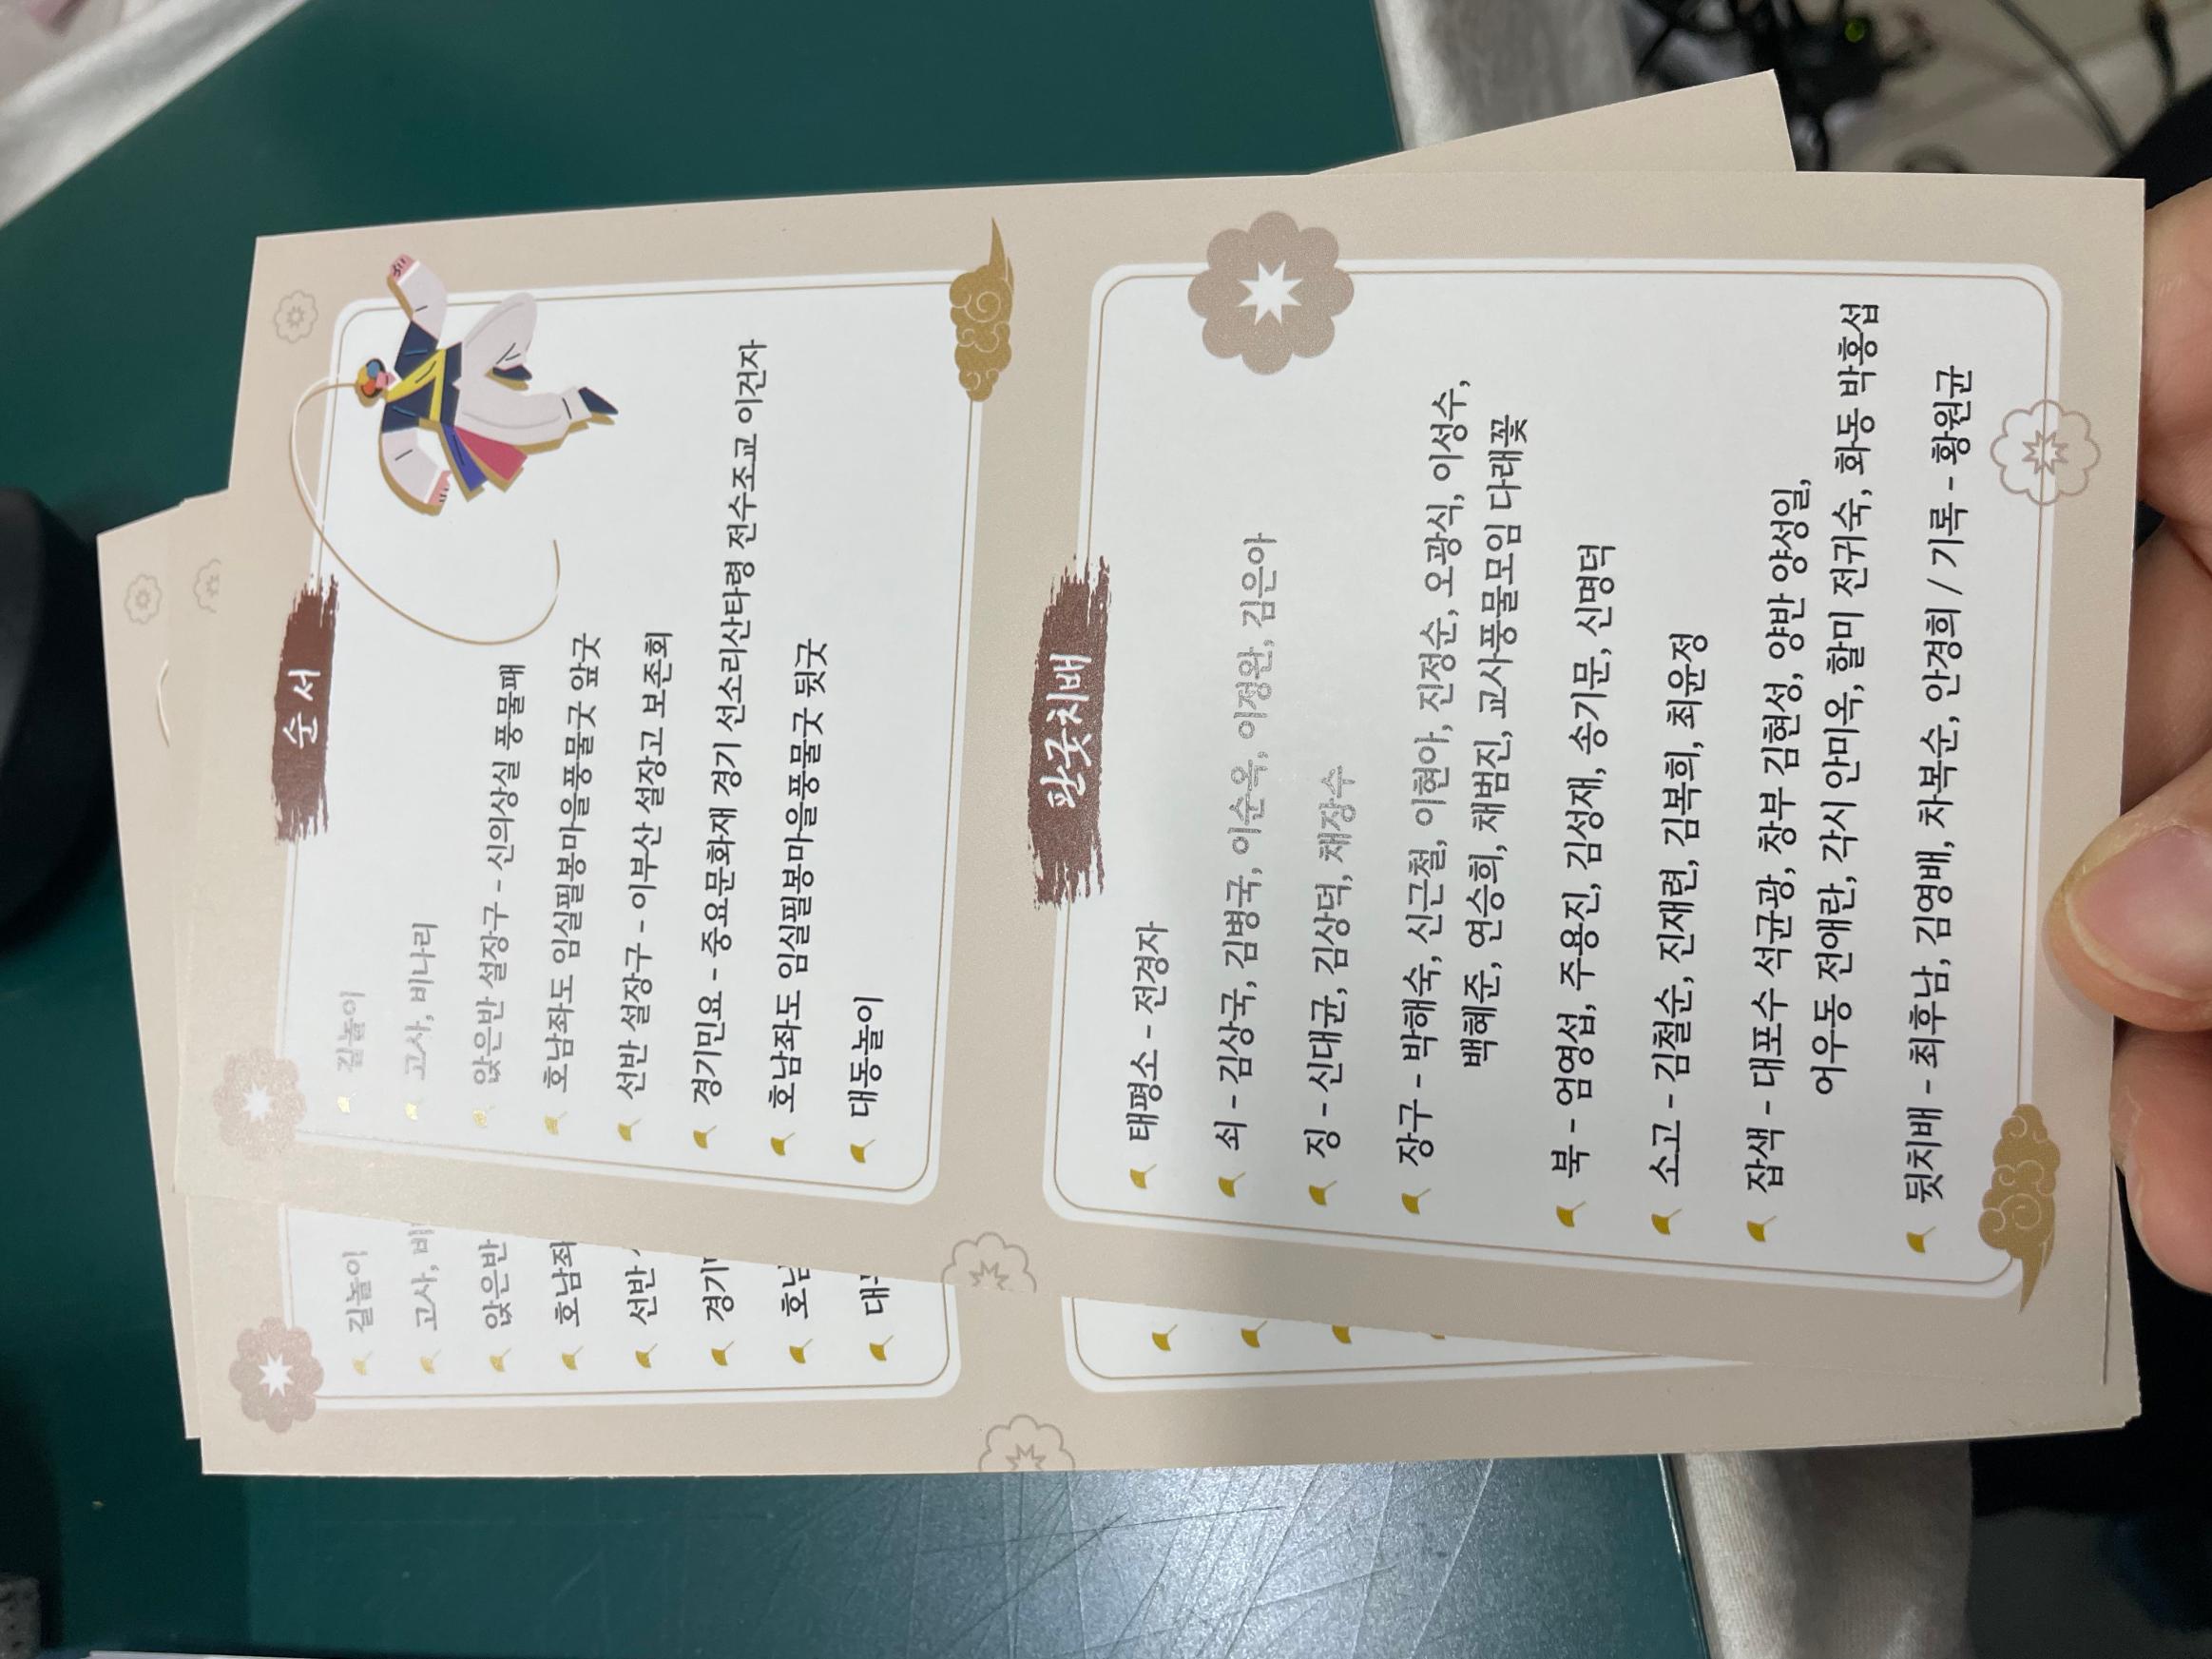 순서
길놀이
고사, 비나리
앉은반 설장구 - 신의상실 풍물패
호남좌도 임실필봉마을풍물굿 앞굿
선반 설장구 - 이부산 설장고 보존회
경기민요 - 중요문화재 경기 선소리산타령 전수조교 이건자
호남좌도 임실필봉마을풍물굿 뒷굿
대동놀이
판굿치배
태평소 - 전경자
쇠 - 김상국, 김병국, 이순옥, 이정완, 김은아
징 - 신대균, 김상덕, 채장수
장구 - 박해숙, 신근철, 이현아, 진정순, 오광식, 이성수,
백혜준, 연승희, 채범진, 교사풍물모임 다래꽃
북 - 엄영섭, 주용진, 김성재, 송기문, 신명덕
소고 - 김철순, 진재련, 김복희, 최윤정
잡색 - 대포수 석균광, 창부 김현성, 양반 양성일,
어우동 전애란, 각시 안미옥, 할미 전귀숙, 화동 박홍섭
뒷치배 - 최후남, 김영배, 차복순, 안경희 / 기록 - 황원균
길놀이
고사, 비
앉은반
호남좌
선반
경기
호남
대